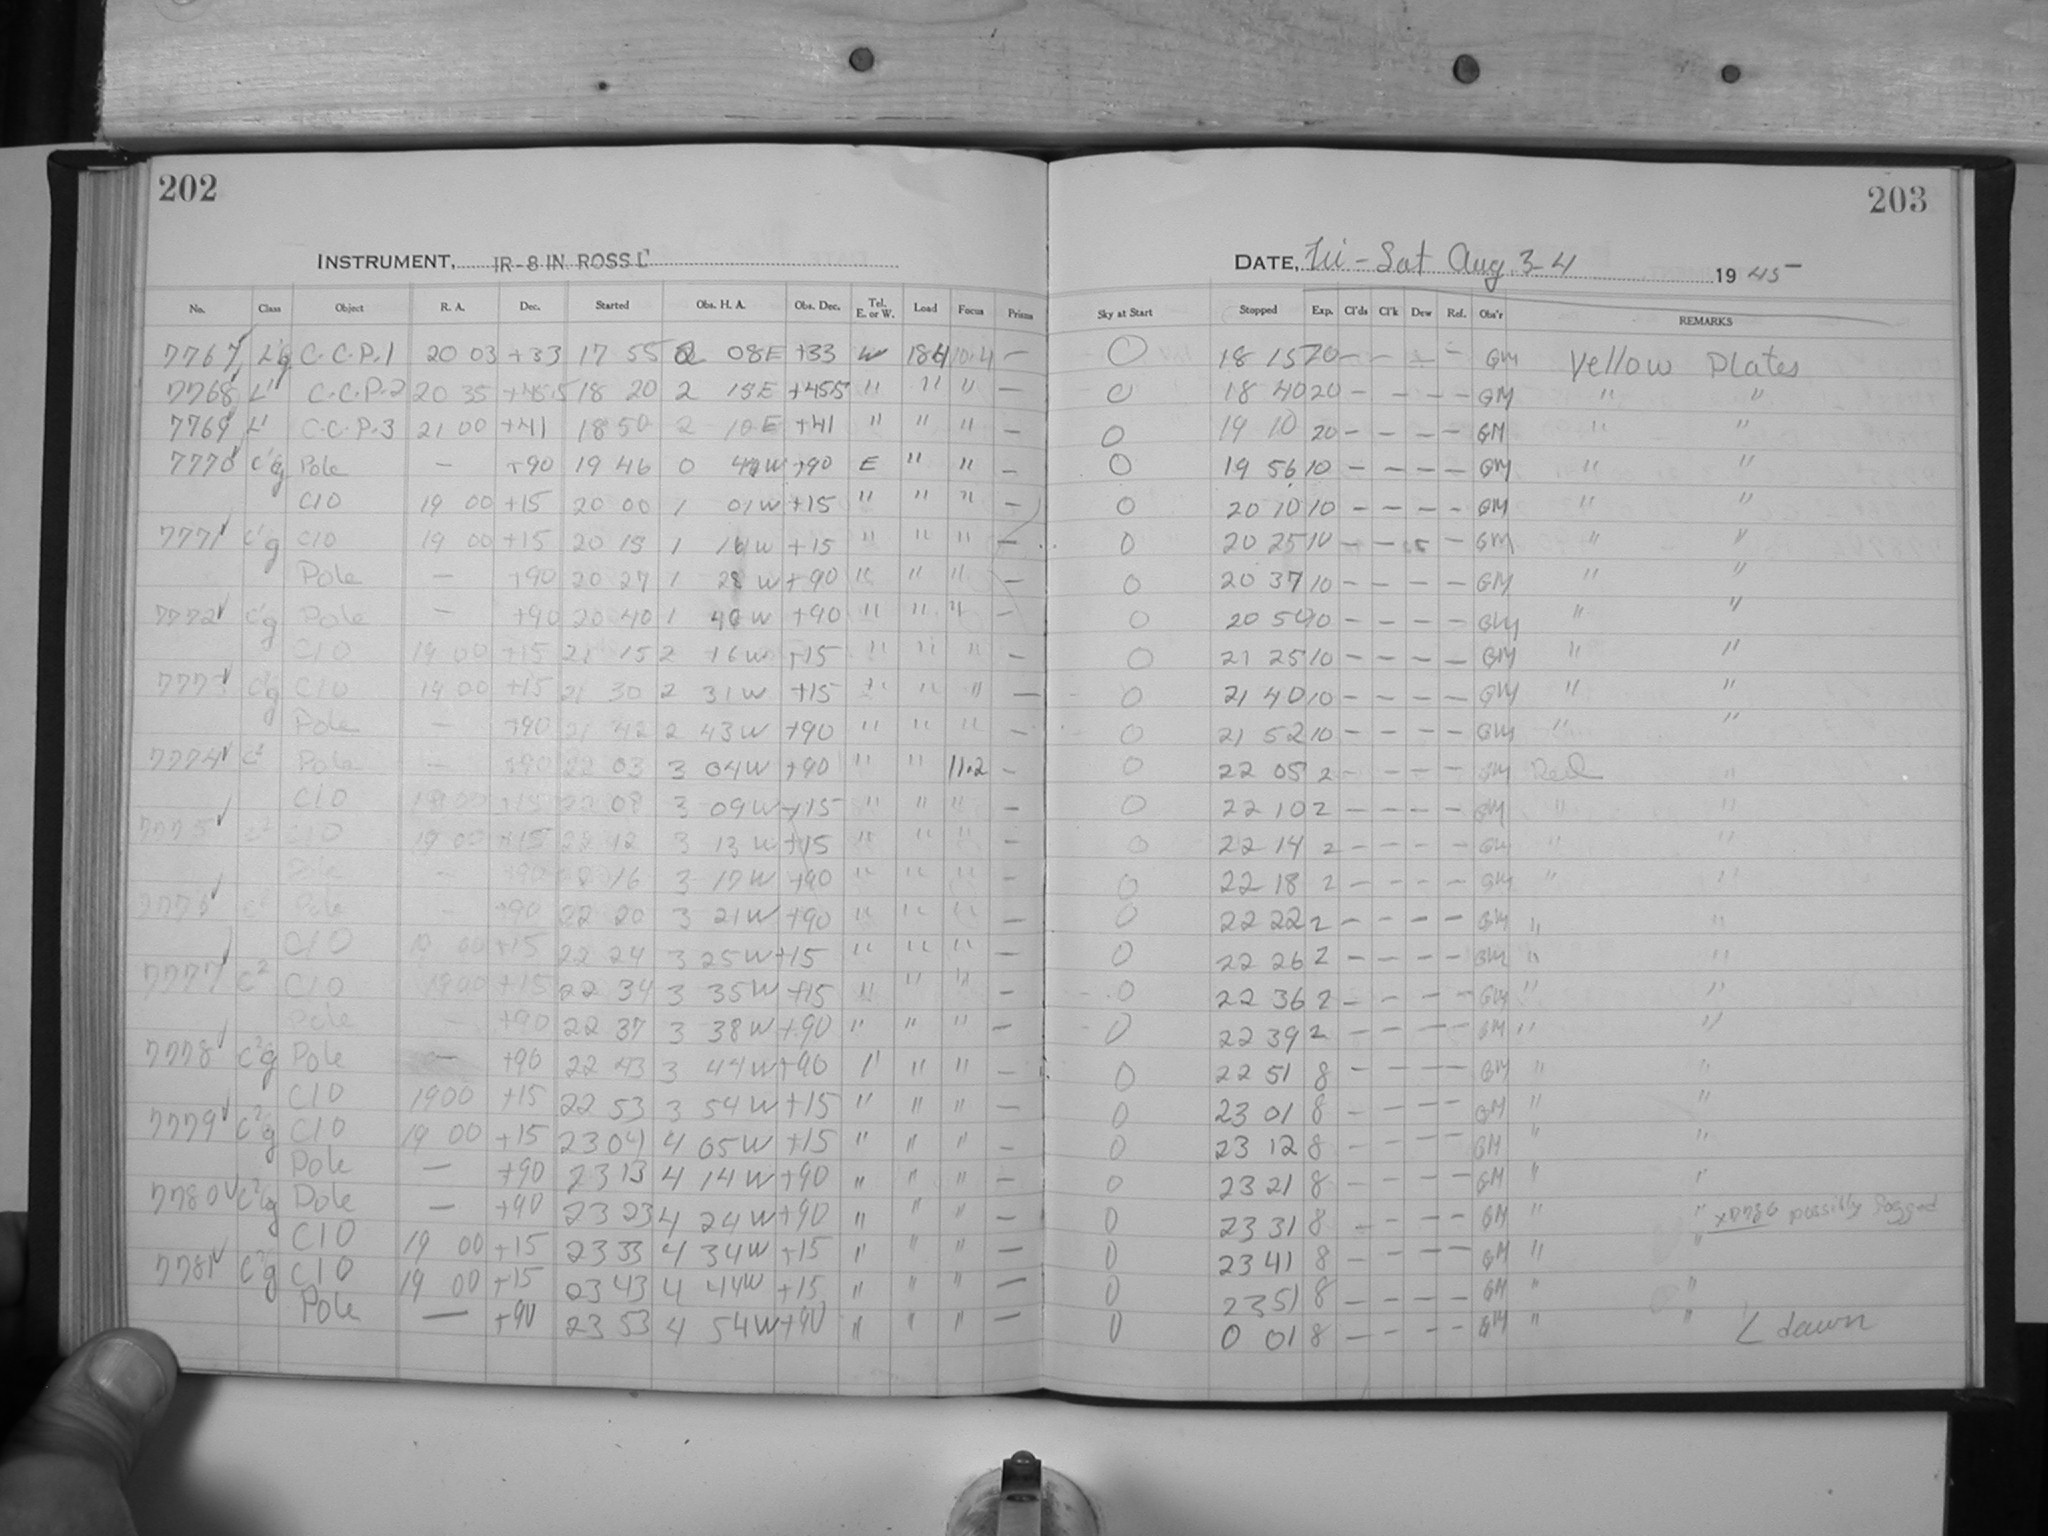 202
203
INSTRUMENT, IR-8 IN ROSS L'
DATE, Fri - Sat Aug 3-4 1945
No. Class Object R. A. Dec. Started Obs. H. A. Obs. Dec. Tel. E. or W. Load Focus Prisms Sky at Start Stopped Exp. Cl'ds Cl'k Dew Ref. Obs'r REMARKS
7767 L'g C.C.P.1 20 03 +33 17 55 2 08E +33 W 184 10.4 — O 18 15 20 — — — — GM Yellow Plates
7768 L' C.C.P.2 20 35 +45.5 18 20 2 15E +455 " " " — O 18 40 20 — — — — GM " "
7769 L' C.C.P.3 21 00 +41 18 50 2 10E +41 " " " — O 19 10 20 — — — — GM " "
7770 C'g Pole — +90 19 46 0 W +90 E " " — O 19 56 10 — — — — GM " "
C10 19 00 +15 20 00 1 01W +15 " " " — O 20 10 10 — — — — GM " "
7771 C'g C10 19 00 +15 20 15 1 16W +15 " " " — O 20 25 10 — — — GM " "
Pole — +90 20 27 1 28W +90 " " " — O 20 37 10 — — — — GM " "
7772 C'g Pole — +90 20 40 1 W +90 " " " — O 20 50 10 — — — — GM " "
C10 19 00 +15 21 15 2 16W +15 " " " — O 21 25 10 — — — — GM " "
7773 C'g C10 19 00 +15 21 30 2 31W +15 " " " — O 21 40 10 — — — — GM " "
Pole — +90 21 42 2 43W +90 " " " — O 21 52 10 — — — — GM " "
7774 C² Pole — +90 22 03 3 04W +90 " " 11.2 — O 22 05 2 — — — — GM Red "
C10 19 00 +15 22 08 3 09W +15 " " " — O 22 10 2 — — — — GM " "
7775 C² C10 19 00 +15 22 12 3 13W +15 " " " — O 22 14 2 — — — — GM " "
Pole — +90 22 16 3 17W +90 " " " — O 22 18 2 — — — — GM " "
7776 C² Pole — +90 22 20 3 21W +90 " " " — O 22 22 2 — — — — GM " "
C10 19 00 +15 22 24 3 25W +15 " " " — O 22 26 2 — — — — GM " "
7777 C² C10 19 00 +15 22 34 3 35W +15 " " " — O 22 36 2 — — — — GM " "
Pole — +90 22 37 3 38W +90 " " " — O 22 39 2 — — — — GM " "
7778 C²g Pole — +90 22 43 3 44W +90 " " " — O 22 51 8 — — — — GM " "
C10 19 00 +15 22 53 3 54W +15 " " " — O 23 01 8 — — — — GM " "
7779 C²g C10 19 00 +15 23 04 4 05W +15 " " " — O 23 12 8 — — — — GM " "
Pole — +90 23 13 4 14W +90 " " " — O 23 21 8 — — — — GM " "
7780 C²g Pole — +90 23 23 4 24W +90 " " " — O 23 31 8 — — — — GM " " possibly fogged
C10 19 00 +15 23 33 4 34W +15 " " " — O 23 41 8 — — — — GM " "
7781 C²g C10 19 00 +15 23 43 4 44W +15 " " " — O 23 51 8 — — — — GM " "
Pole — +90 23 53 4 54W +90 " " " — O 0 01 8 — — — — GM " " dawn